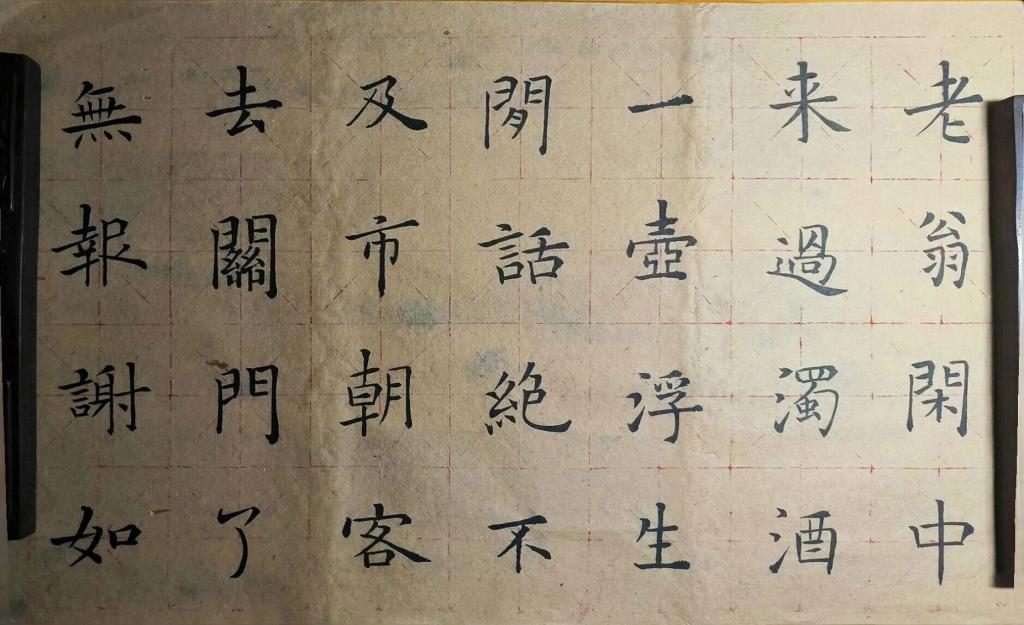 老翁閑中
来過濁酒
一壺浮生
閒話絶不
及市朝客
去關門了
無報謝如